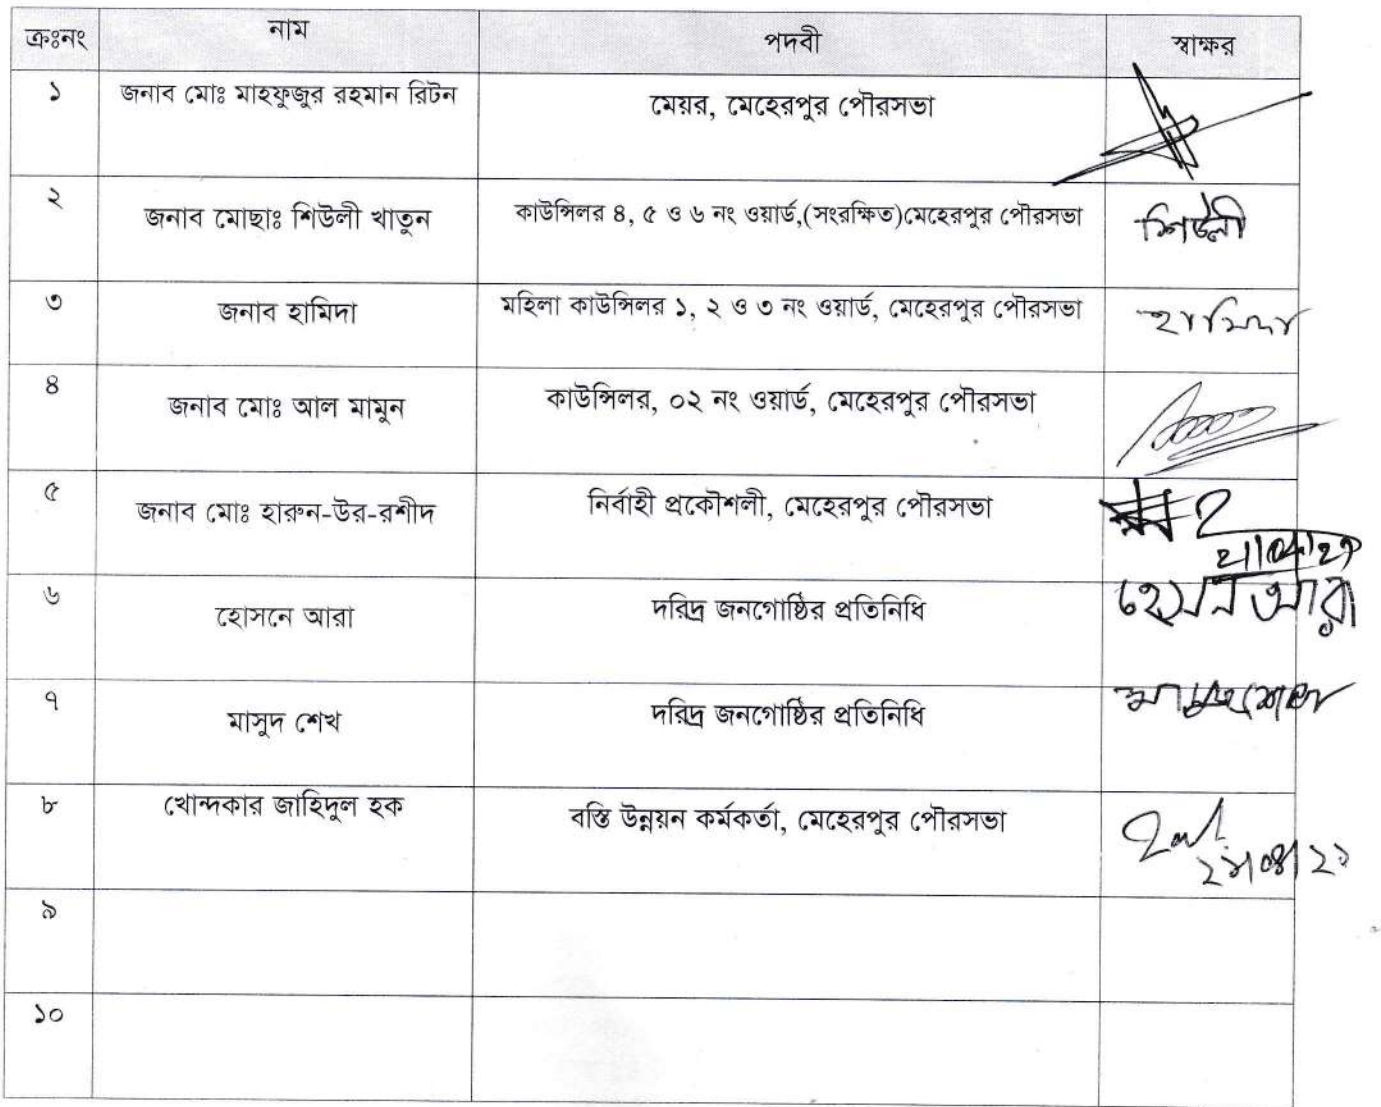 ক্রঃনং নাম পদবী স্বাক্ষর
১ জনাব মোঃ মাহফুজুর রহমান রিটন মেয়র, মেহেরপুর পৌরসভা
২ জনাব মোছাঃ শিউলী খাতুন কাউন্সিলর ৪, ৫ ও ৬ নং ওয়ার্ড,(সংরক্ষিত)মেহেরপুর পৌরসভা শিউলী
৩ জনাব হামিদা মহিলা কাউন্সিলর ১, ২ ও ৩ নং ওয়ার্ড, মেহেরপুর পৌরসভা হামিদা
৪ জনাব মোঃ আল মামুন কাউন্সিলর, ০২ নং ওয়ার্ড, মেহেরপুর পৌরসভা
৫ জনাব মোঃ হারুন-উর-রশীদ নির্বাহী প্রকৌশলী, মেহেরপুর পৌরসভা
৬ হোসনে আরা দরিদ্র জনগোষ্ঠির প্রতিনিধি হোসনে আরা
৭ মাসুদ শেখ দরিদ্র জনগোষ্ঠির প্রতিনিধি মাসুদ শেখ
৮ খোন্দকার জাহিদুল হক বস্তি উন্নয়ন কর্মকর্তা, মেহেরপুর পৌরসভা
৯
১০